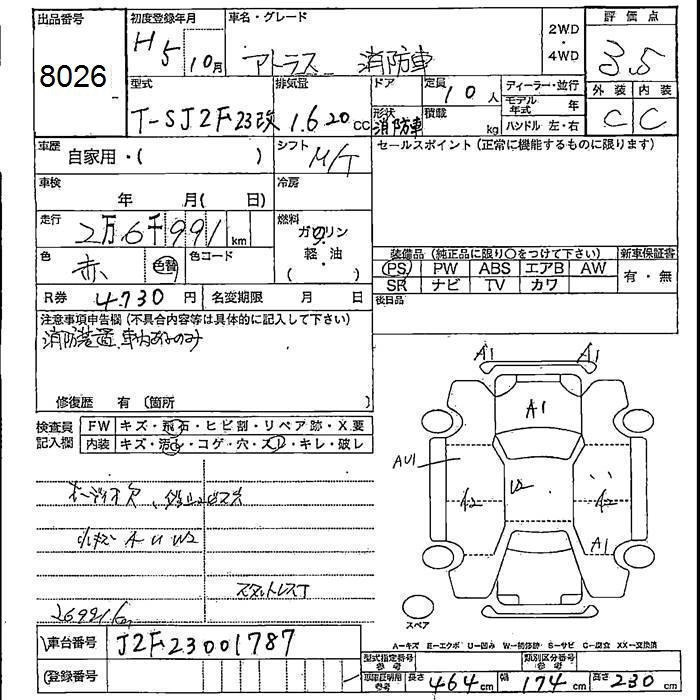 出品番号 初度登録年月 車名・グレード 2WD・4WD 評価点
8026 H5 10月 アトラス 消防車 3.5
型式 排気量 ドア 定員 10人 ディーラー・並行 外装 内装
T-SJ2F23改 1.620cc 形状 消防車 積載 kg モデル年式 年 C C
ハンドル 左・右
車歴 自家用・( ) シフト M/T セールスポイント(正常に機能するものに限ります)
車検 年 月( 日) 冷房
走行 2万6千991km 燃料 ガソリン
軽・油
( ・ )
色 赤 色替 色コード
装備品(純正品に限り○をつけて下さい) 新車保証書
PS PW ABS エアB AW 有・無
SR ナビ TV カワ
R券 4730円 名変期限 月 日 後日品
注意事項申告欄(不具合内容等は具体的に記入して下さい)
消防装置、車内あみのみ
修復歴 有 〔箇所 〕
検査員記入欄 FW キズ・飛石・ヒビ割・リペア跡・X要
内装 キズ・汚れ・コゲ・穴・スレ・キレ・破レ
A1 A1
A1
AU1
A2 W A2
A1
オーディオ欠、
小キズ A U W2
スタットレスT
26991km
スペア
車台番号 J2F23001787
登録番号
A=キズ E=エクボ U=凹み W=補修跡 S=サビ C=腐食 XX=交換済
型式指定番号 参考 類別区分番号 参考
車庫証明用 参考 長さ 464cm 幅 174cm 高さ 230cm